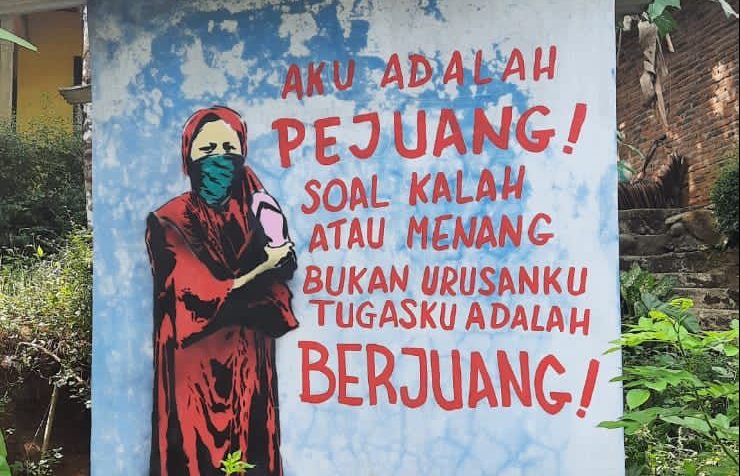 AKU ADALAH
PEJUANG!
SOAL KALAH
ATAU MENANG
BUKAN URUSANKU
TUGASKU ADALAH
BERJUANG!